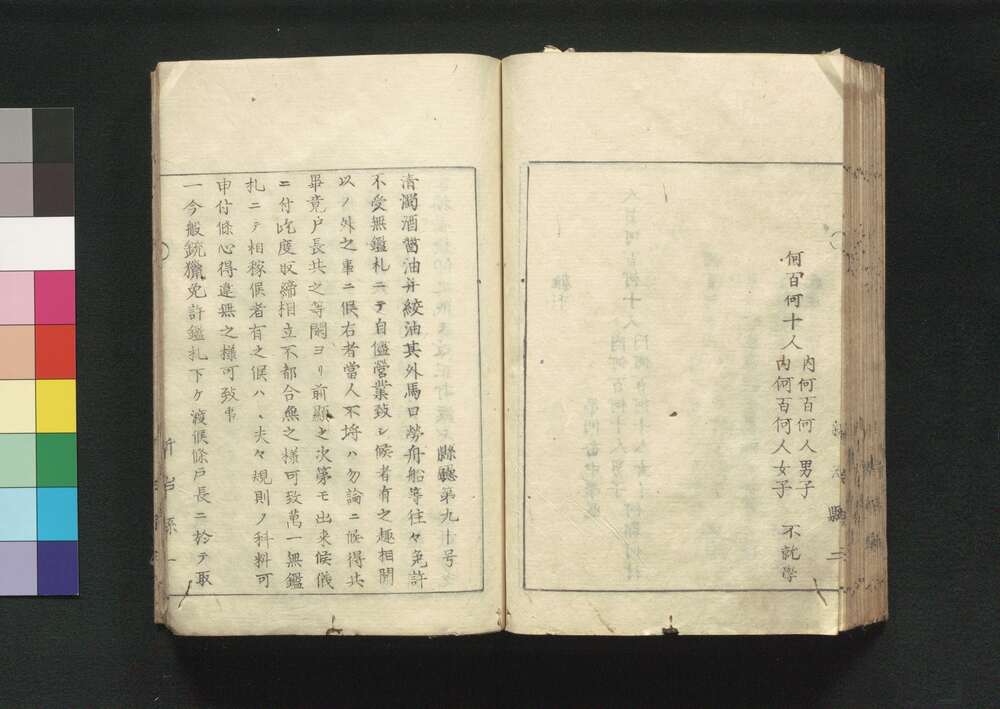 何百何十人
内何百何人男子
内何百何人女子
不就学
縣廳第九十号
清濁酒醤油并絞油其外馬口労舟船等往々免許
不受無鑑札ニテ自儘営業致シ候者有之趣相聞
以ノ外之事ニ候右者當人不埒ハ勿論ニ候得共
畢竟戸長共之等閑ヨリ前顕之次第モ出来候儀
ニ付屹度取締相立不都合無之様可致萬一無鑑
札ニテ相稼候者有之候ハ、夫々規則ノ科料可
申付條心得違無之様可致事
一今般銃猟免許鑑札下ケ渡候條戸長ニ於テ取